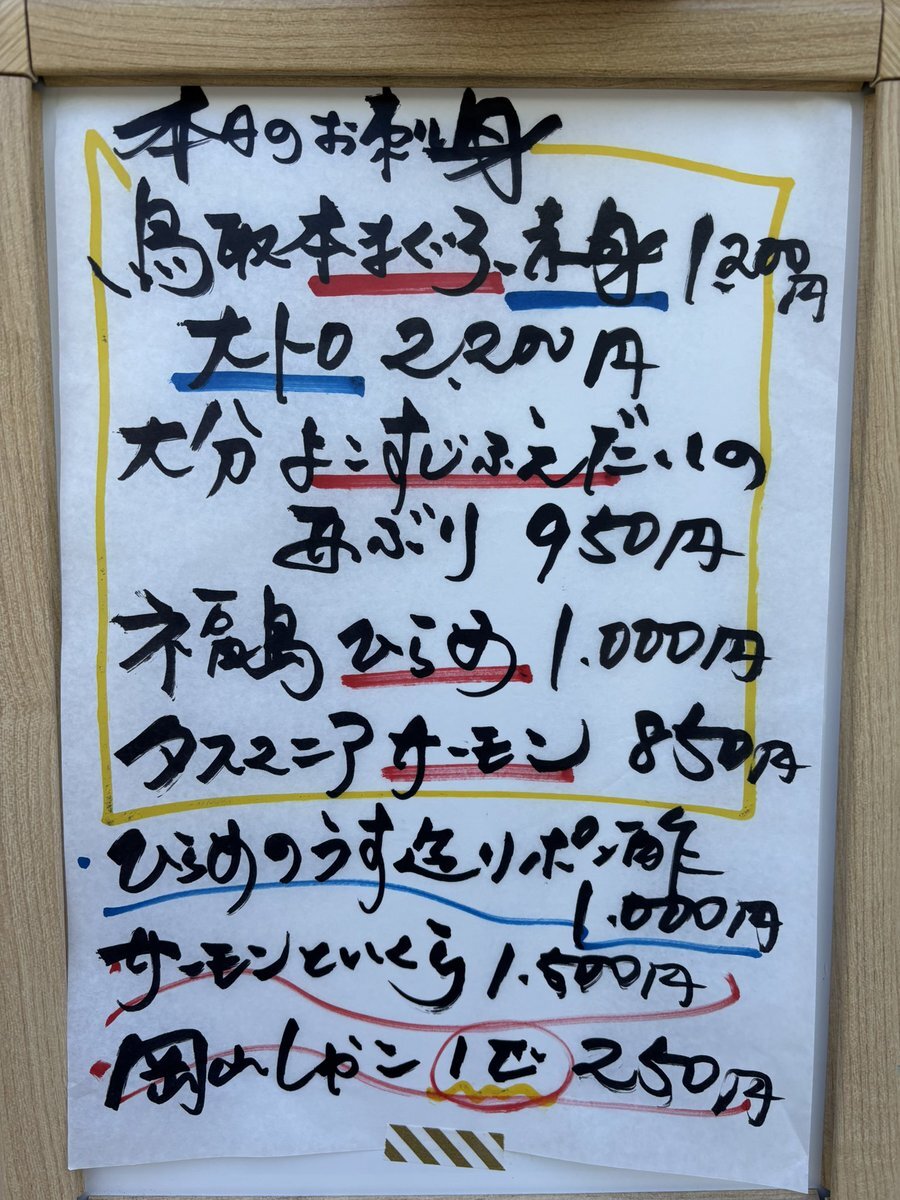 本日のお刺し身
鳥取本まぐろ赤身 1,200円
大トロ 2,200円
大分 よこすじふえだいの
炙ぶり 950円
福島 ひらめ 1.000円
タスマニアサーモン 850円
・ひらめのうす造りポン酢
1.000円
サーモンといくら 1.500円
岡山しゃこ 1匹 250円